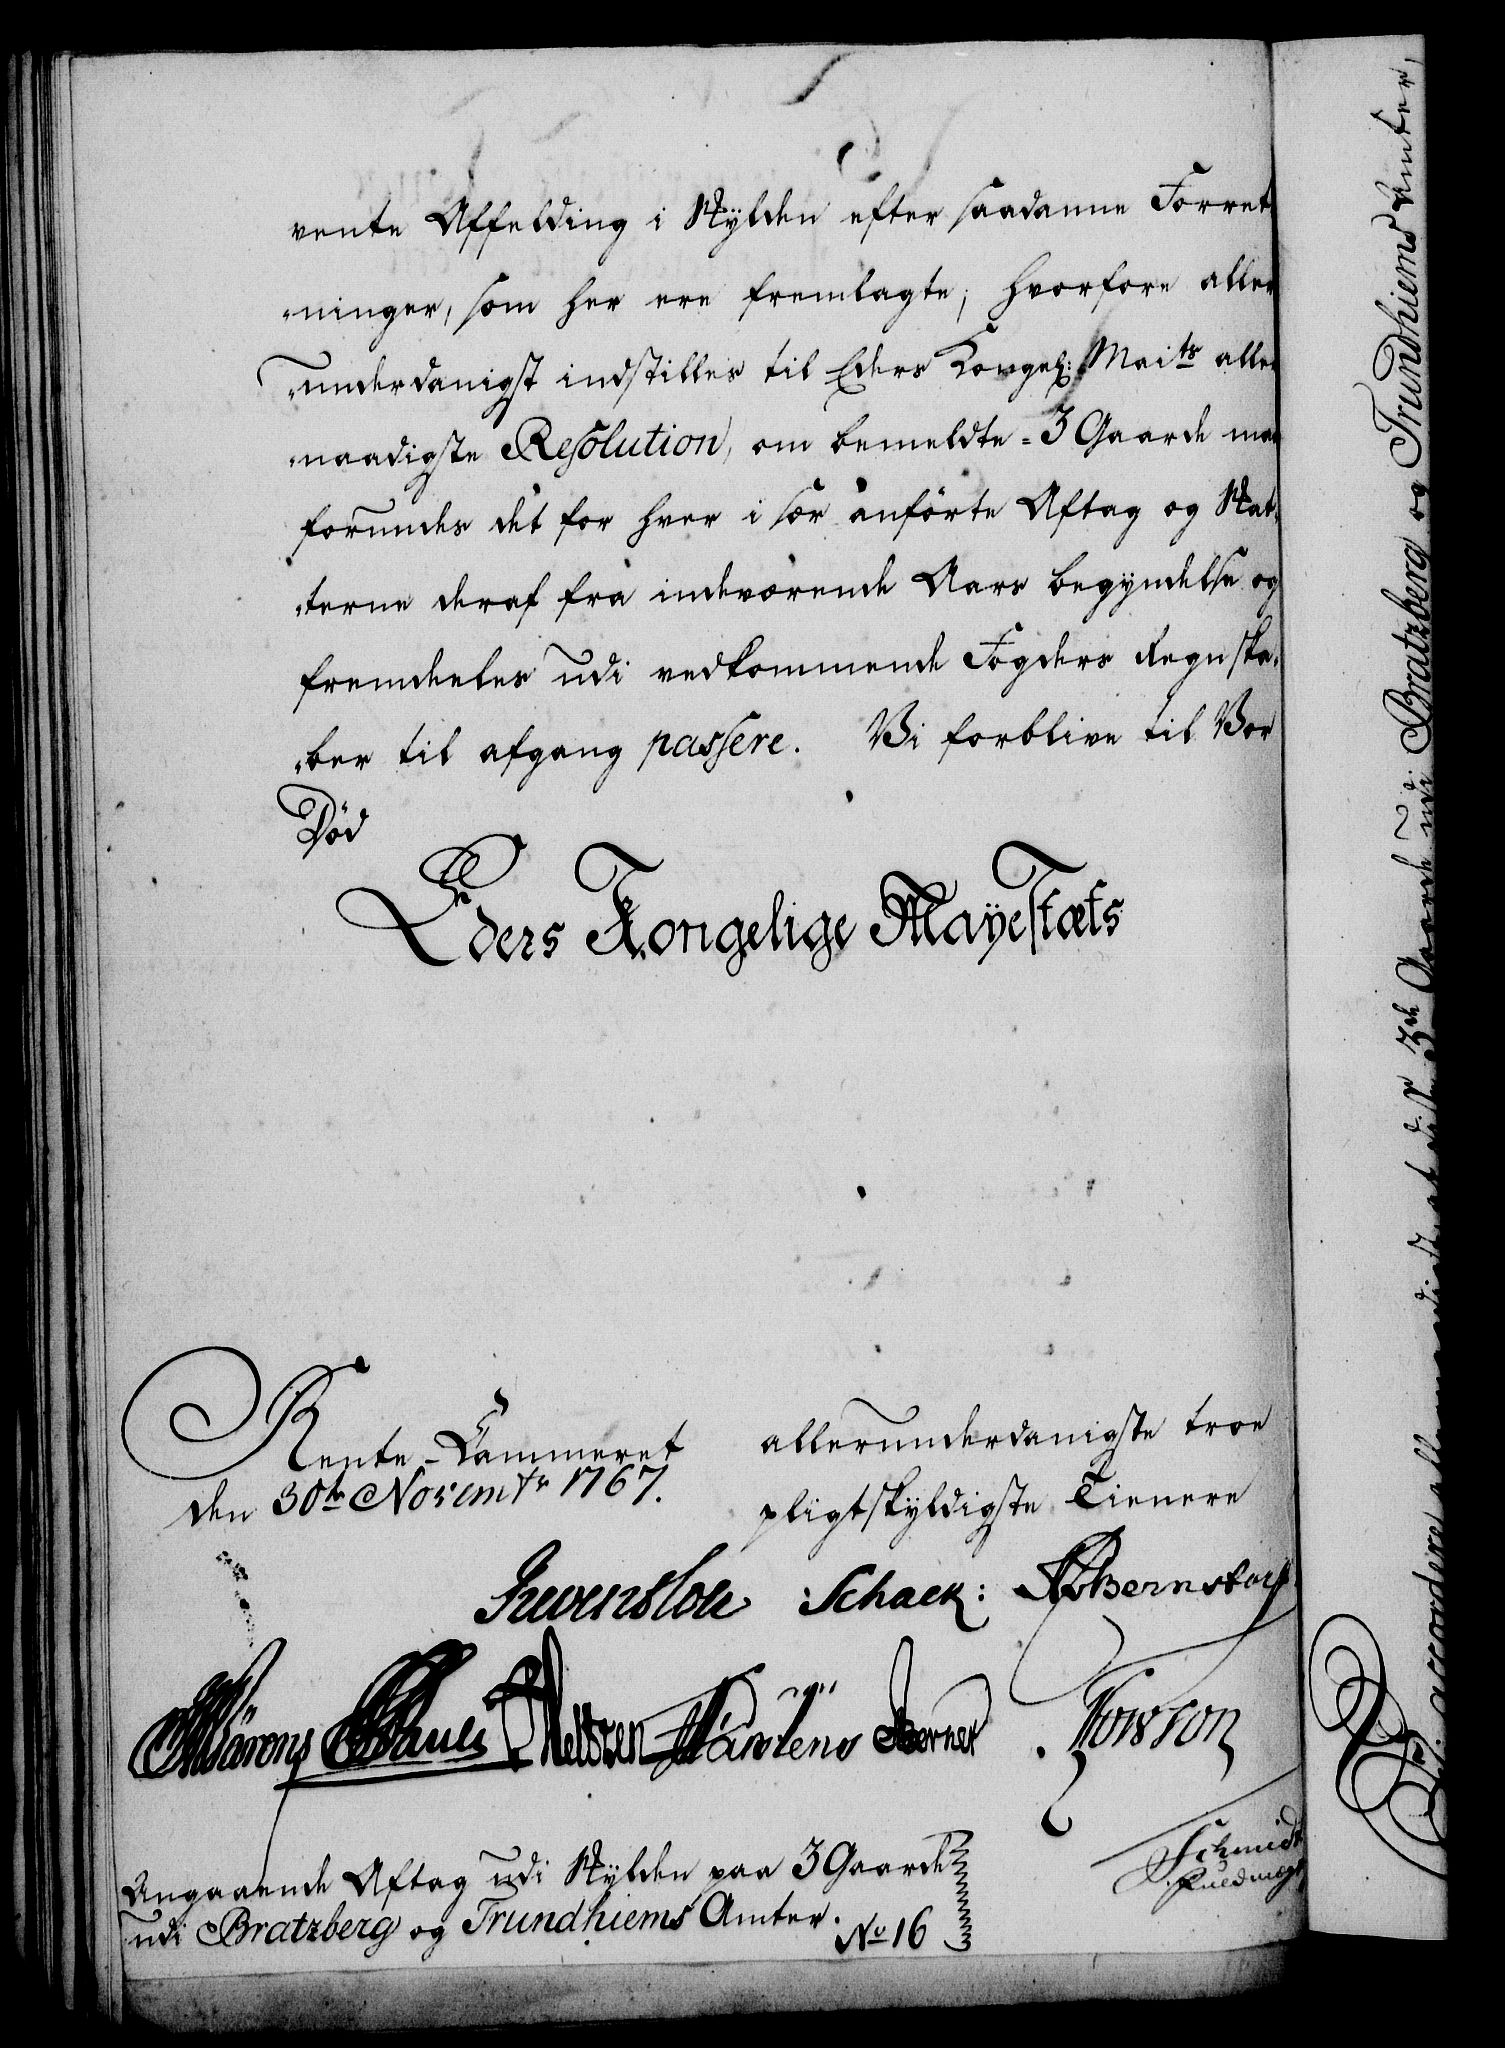 vente Affelding i Skylden efter saadanne Forret
„ninger, som her ere fremlagte; hvorfore aller
„underdanigst indstilles til Eders Kongel: Maits aller
„naadigste Resolution, om bemeldte 3 Gaarde maa
forundes det for hver i sær anførte Aftag og Skat„
„terne deraf fra indeværende Aars begyndelse og
fremdeeles udi vedkommende Fogders Regnska„
„ber til afgang passere. Vi forblive til Vor
Död
Eders Kongelige Mayestæts
Rente-Cammeret
den 30te Novembr 1767.
allerunderdanigste troe
pligtskyldigste Tienere
Reventlou Schack: Bernstorff
Pauli Neltzen Karstens Berner
Schmidt
Angaaende Aftag udi Skylden paa 3 Gaarde
udi Bratzberg og Trundhiems Amter.
No 16
accordere allernaadigst at disse 3de Gaarde udi Bratzberg og Trundhiems Amter,